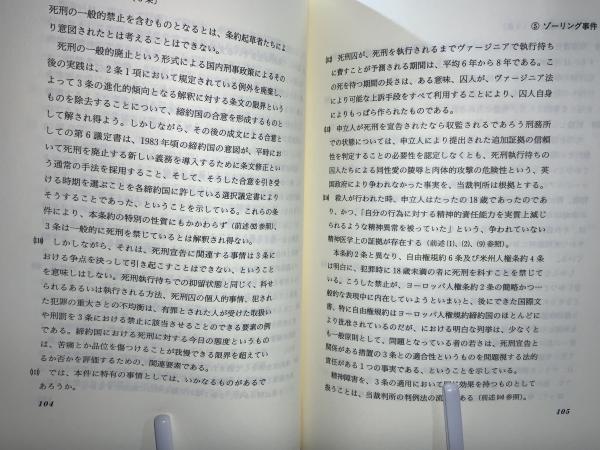 死刑の一般的禁止を含むものとなるとは、条約起草者たちによ
り意図されたとは考えることはできない。
死刑の一般的廃止という形式による国内刑事政策によるその
後の実践は、2条1項において規定されている例外を廃棄し、
よって3条の進化的傾向となる解釈に対する条文の限界という
ものを除去することについて、締約国の合意を形成するものと
して解され得よう。しかしながら、その後の成文による合意と
しての第6議定書は、1983年頃の締約国の意図が、平時にお
いて死刑を廃止する新しい義務を導入するために条文修正とい
う通常の手法を採用すること、そして、そうした合意を引き受
ける時期を選ぶことを各締約国に許している選択議定書により
そうすることであった、ということを示している。これらの条
件により、本条約の特別の性質にもかかわらず（前述参照）、
3条は一般的に死刑を禁じているとは解釈され得ない。
しかしながら、それは、死刑宣告に関連する事情は3条に
おける争点を決して引き起こすことはできない、ということ
を意味しはしない。死刑執行待ちでの抑留状態と同じく、科せ
られるあるいは執行される方法、死刑囚の個人的事情、犯され
た犯罪の重大さとの不均衡は、有罪とされた人が受けた取扱い
や刑罰を3条における禁止に該当させることのできる要素の例
である。締約国における死刑に対する今日の態度というもの
は、苦痛とか品位を傷つけることが我慢できる限界を超えてい
るか否かを評価するための、関連要素である。
では、本件に特有の事情としては、いかなるものがあるで
あろうか。
104
⑤ ゾーリング事件
死刑囚が、死刑を執行されるまでヴァージニアで執行待ち
に費すことが予測される期間は、平均6年から8年である。こ
の死を待つ期間の長さは、ある意味、囚人が、ヴァージニア法
により可能な上訴手段をすべて利用することにより、囚人自身
によりもっぱら作られたものである。
申立人が死刑を宣告されたなら収監されるであろう刑務所
での状態については、申立人により提出された追加証拠の信頼
性を判定することの必要性を認定しなくとも、死刑執行待ちの
囚人たちによる同性愛の陵辱と肉体的攻撃の危険性という、英
国政府により争われなかった事実を、当裁判所は根拠とする。
殺人が行われた時、申立人はたったの18歳であったのであ
り、かつ、「自分の行為に対する精神的責任能力を実質上減じ
られるような精神異常を被っていた」という、争われていない
精神医学上の証拠が存在する（前述(1)、(2)、(9)参照）。
本条約2条と異なり、自由権規約6条及び米州人権条約4条
は明白に、犯罪時に18歳未満の者に死刑を科すことを禁じて
いる。こうした禁止が、ヨーロッパ人権条約2条の簡略かつ一
般的な表現中に内在していようといまいと、後にできた国際文
書、特に自由権規約はヨーロッパ人権規約締約国のほとんどに
より批准されているのだが、における明白な列挙は、少なくと
も一般原則として、問題となっている者の若さは、死刑宣告と
関係がある措置の3条との適合性というものを問題視する法的
責任がある1つの事実である、ということを示している。
精神障害を、3条の適用において 効果を持つものとして
扱うことは、当裁判所の判例法の流 ある（前述参照）。
105